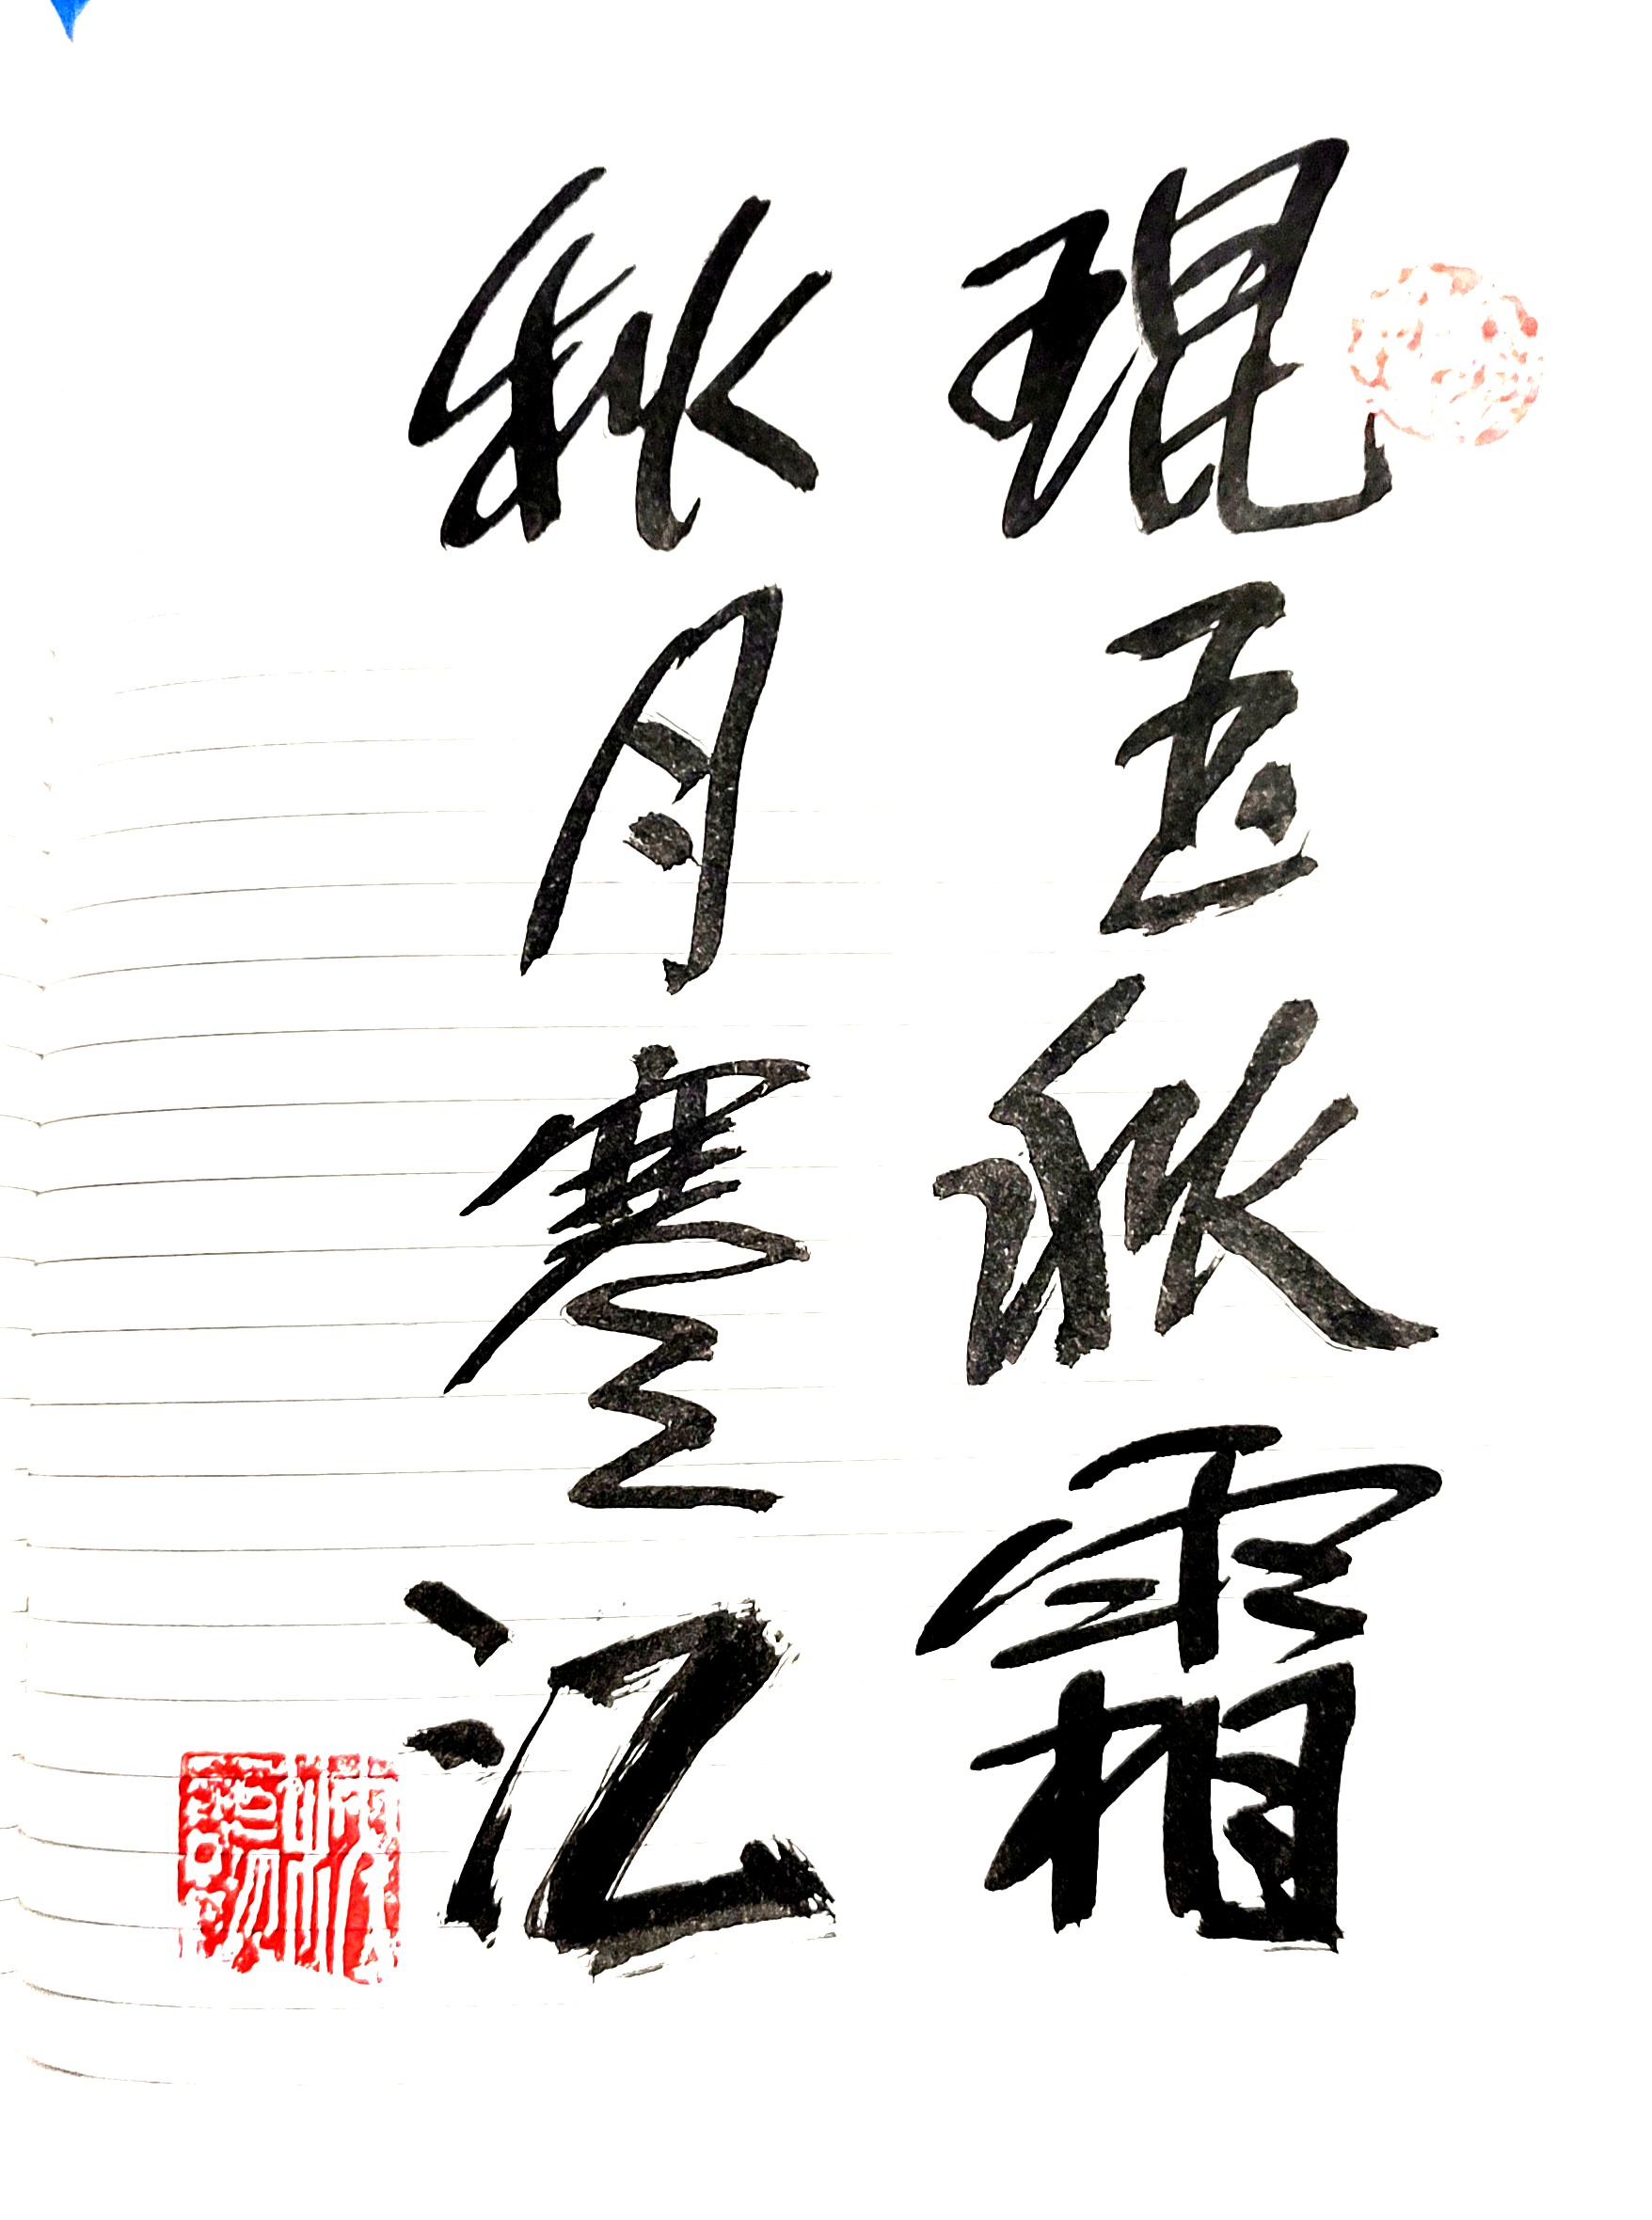 琨玉秋霜
秋月寒江